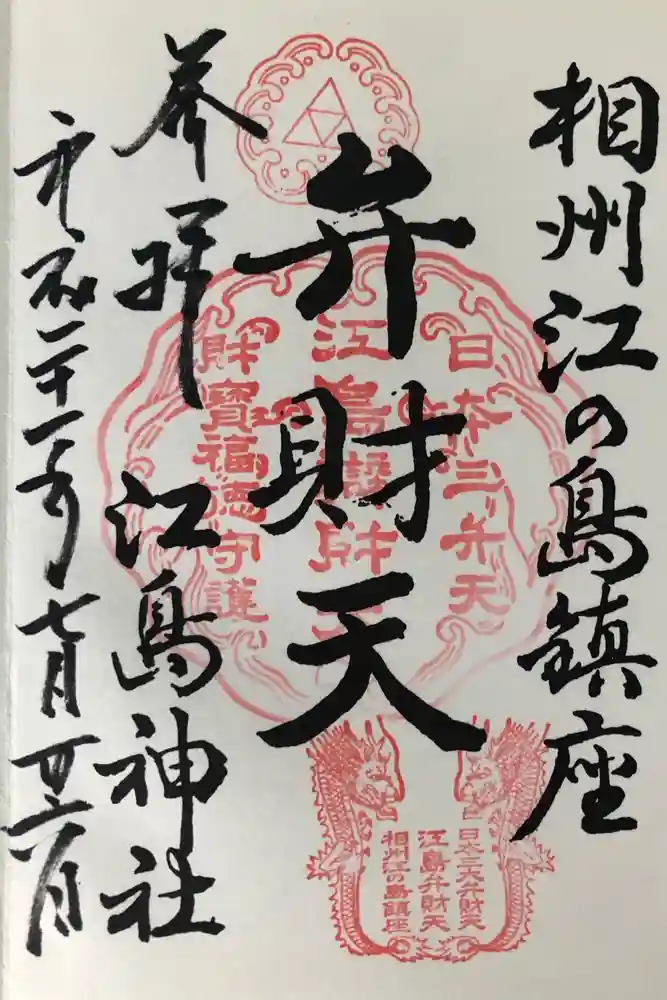 相州江の島鎮座
弁財天
奉拝
江島神社
平成二十一年七月廿六日
日本三弁天
江島財
財寶福徳守護
日本三大弁財天
江島弁財天
相州江の島鎮座